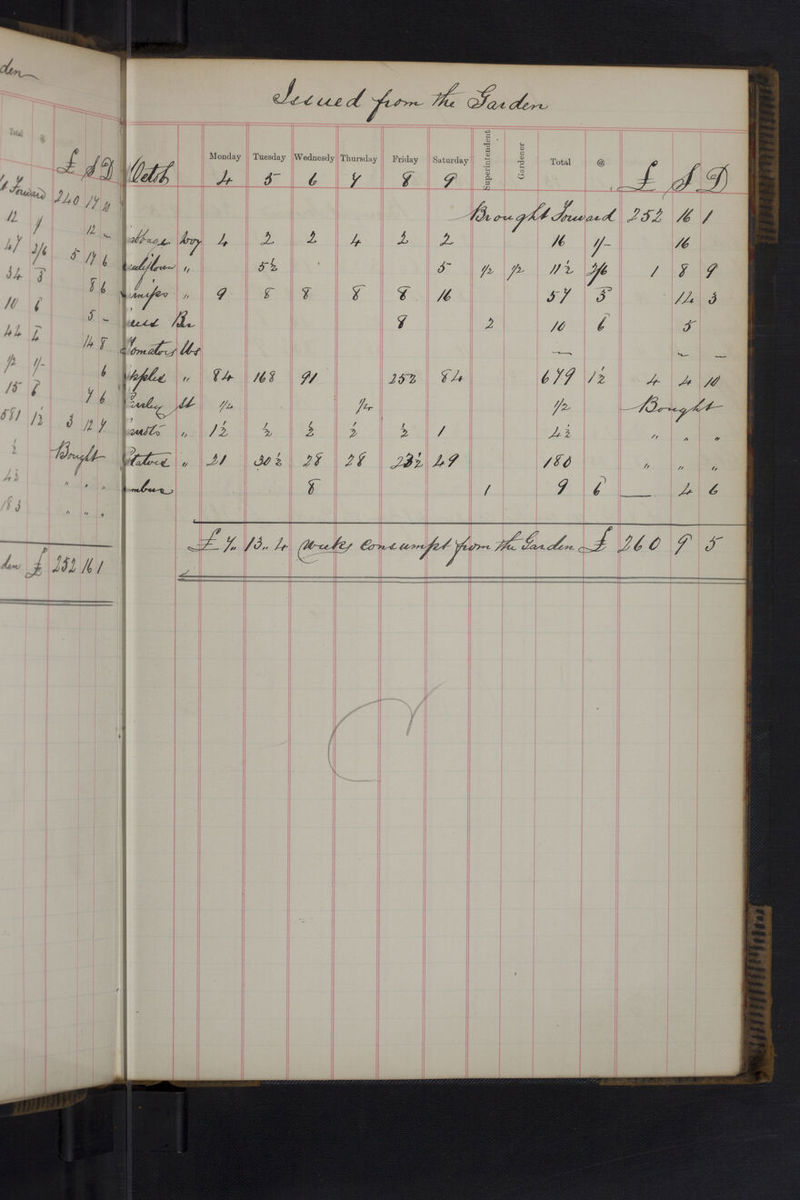 den
Total @
£ S D
Forward 240 17 10
12 1/ 12 -
47 2/6 5 17 6
34 3 8 6
10 6 5 -
44 4 14 8
1/2 1/- 6
15 6 7 6
581 1½ 3 12 7
½ Bought
4½ " " "
183 " " "
den £ 252 16 1
Issued from the Garden
Octob Monday 4 Tuesday 5 Wednesdy 6 Thursday 7 Friday 8 Saturday 9 Superintendent Gardener Total @ £ S D
Brought Forward 252 16 1
4 2 2 4 2 2 16 1/- 16
" 5½ 5 1/2 1/2 11½ 2/6 1 8 9
" 9 8 8 8 8 16 57 3 14 3
8 2 10 6 5
Tomatoes lbs — — —
Apples " 84 168 91 252 84 679 1½ 4 4 10
Parsley St 1/4 1/4 1/2 Bought
" 1½ ½ ½ ½ ½ 1 4½ " " "
" 21 30½ 28 28 23½ 49 180 " " "
8 1 9 6 — 4 6
£7,, 13,, 4 Weeks Consumpt from the Garden £ 260 9 5